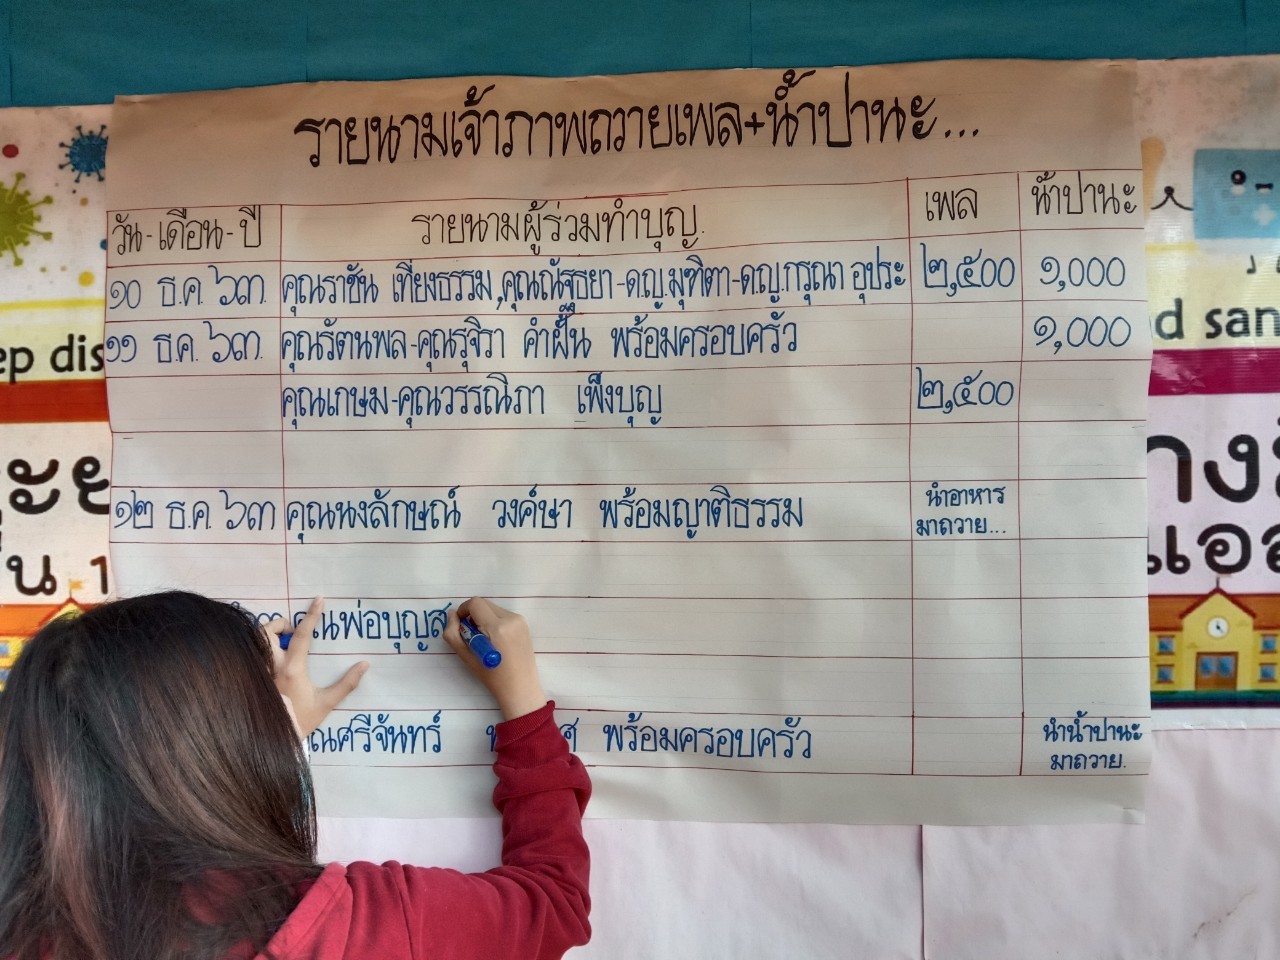 รายนามเจ้าภาพถวายเพล+น้ำปานะ...
วัน-เดือน-ปี รายนามผู้ร่วมทำบุญ. เพล น้ำปานะ
๑๐ ธ.ค. ๖๓. คุณราชัน เที่ยงธรรม,คุณณัฐธยา-ด.ญ.มุทิตา-ด.ญ.กรุณา อุประ ๒,๕๐๐ ๑,๐๐๐
๑๑ ธ.ค. ๖๓. คุณรัตนพล-คุณรุจิรา คำฝั้น พร้อมครอบครัว ๑,๐๐๐
คุณเกษม-คุณวรรณิภา เพ็งบุญ ๒,๕๐๐
๑๒ ธ.ค. ๖๓ คุณนงลักษณ์ วงค์ษา พร้อมญาติธรรม นำอาหาร
มาถวาย...
คุณพ่อบุญส
คุณศรีจันทร์ พร้อมครอบครัว นำน้ำปานะ
มาถวาย.
ep dis
d san